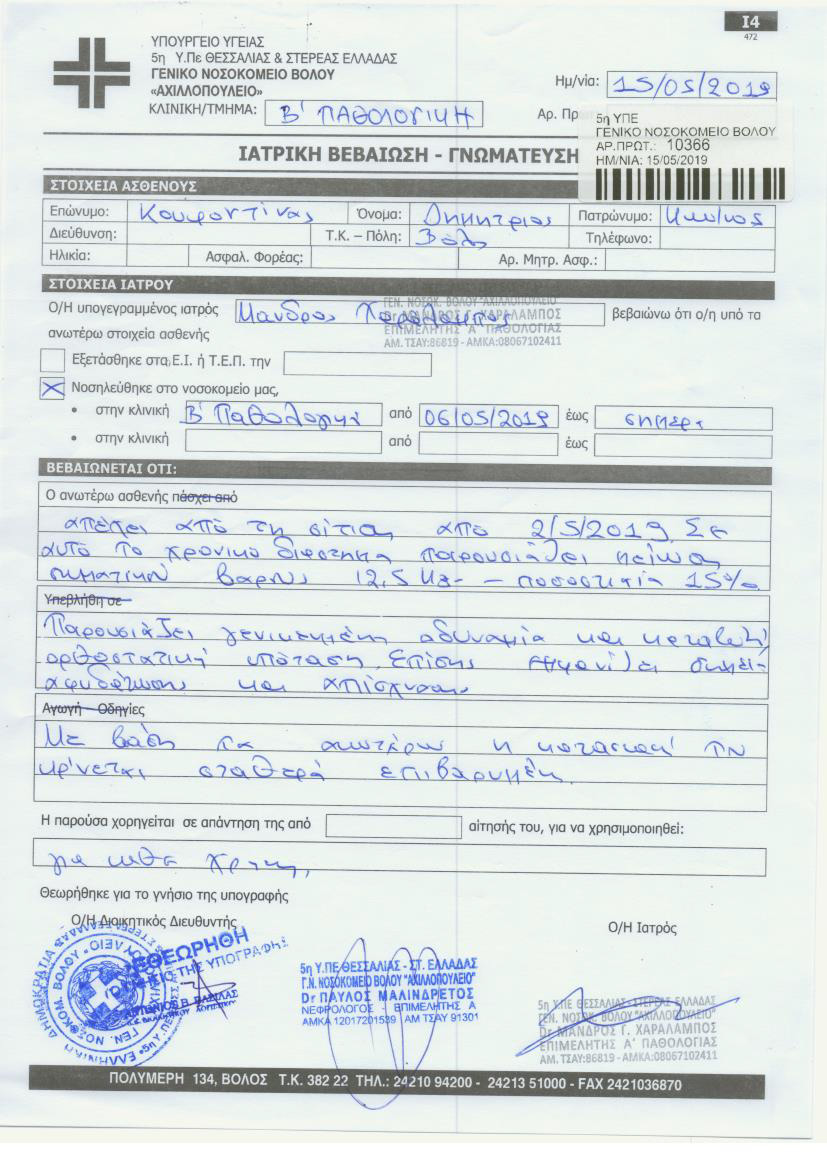 Ι4
472
ΥΠΟΥΡΓΕΙΟ ΥΓΕΙΑΣ
5η Υ.Πε ΘΕΣΣΑΛΙΑΣ & ΣΤΕΡΕΑΣ ΕΛΛΑΔΑΣ
ΓΕΝΙΚΟ ΝΟΣΟΚΟΜΕΙΟ ΒΟΛΟΥ
«ΑΧΙΛΛΟΠΟΥΛΕΙΟ»
ΚΛΙΝΙΚΗ/ΤΜΗΜΑ: Β' ΠΑΘΟΛΟΓΙΚΗ
Ημ/νία: 15/05/2019
Αρ. Πρωτ
5η ΥΠΕ
ΓΕΝΙΚΟ ΝΟΣΟΚΟΜΕΙΟ ΒΟΛΟΥ
ΑΡ.ΠΡΩΤ.: 10366
ΗΜ/ΝΙΑ: 15/05/2019
ΙΑΤΡΙΚΗ ΒΕΒΑΙΩΣΗ - ΓΝΩΜΑΤΕΥΣΗ
ΣΤΟΙΧΕΙΑ ΑΣΘΕΝΟΥΣ
Επώνυμο: Κουφοντίνας Όνομα: Δημήτριος Πατρώνυμο:
Διεύθυνση: Τ.Κ. – Πόλη: Τηλέφωνο:
Ηλικία: Ασφαλ. Φορέας: Αρ. Μητρ. Ασφ.:
ΣΤΟΙΧΕΙΑ ΙΑΤΡΟΥ
Ο/Η υπογεγραμμένος ιατρός Μάνδρος Χαράλαμπος βεβαιώνω ότι ο/η υπό τα
ΓΕΝ. ΝΟΣΟΚ. ΒΟΛΟΥ "ΑΧΙΛΛΟΠΟΥΛΕΙΟ"
Dr ΜΑΝΔΡΟΣ Γ. ΧΑΡΑΛΑΜΠΟΣ
ΕΠΙΜΕΛΗΤΗΣ Α' ΠΑΘΟΛΟΓΙΑΣ
ΑΜ.ΤΣΑΥ:86819 - ΑΜΚΑ:08067102411
ανωτέρω στοιχεία ασθενής
Εξετάσθηκε στα Ε.Ι. ή Τ.Ε.Π. την
Νοσηλεύθηκε στο νοσοκομείο μας,
• στην κλινική Β' Παθολογική από 06/05/2019 έως σήμερα
• στην κλινική από έως
ΒΕΒΑΙΩΝΕΤΑΙ ΟΤΙ:
Ο ανωτέρω ασθενής πάσχει από
απέχει από τη σίτιση από 2/5/2019. Σε
αυτό το χρονικό διάστημα παρουσιάζει μείωση
σωματικού βάρους 12,5 Kg - ποσοστιαία 15%
Υπεβλήθη σε
Παρουσιάζει γενικευμένη αδυναμία και καταβολή
ορθοστατική υπόταση. Επίσης εμφανίζει σημεία
αφυδάτωσης και απίσχνασης
Αγωγή – Οδηγίες
Με βάση τα ανωτέρω η κατάστασή του
κρίνεται σταθερά επιβαρυμένη.
Η παρούσα χορηγείται σε απάντηση της από αίτησής του, για να χρησιμοποιηθεί:
για κάθε χρήση,
Θεωρήθηκε για το γνήσιο της υπογραφής
Ο/Η Διοικητικός Διευθυντής
Ο/Η Ιατρός
ΕΘΕΩΡΗΘΗ
ΤΗΣ ΥΠΟΓΡΑΦΗΣ
5η Υ.ΠΕ ΘΕΣΣΑΛΙΑΣ - ΣΤ. ΕΛΛΑΔΑΣ
Γ.Ν. ΝΟΣΟΚΟΜΕΙΟ ΒΟΛΟΥ "ΑΧΙΛΛΟΠΟΥΛΕΙΟ"
Dr ΠΑΥΛΟΣ ΜΑΛΙΝΔΡΕΤΟΣ
ΝΕΦΡΟΛΟΓΟΣ - ΕΠΙΜΕΛΗΤΗΣ Α
ΑΜΚΑ 12017201539 ΑΜ ΤΣΑΥ 91301
5η ΥΠΕ ΘΕΣΣΑΛΙΑΣ - ΣΤΕΡΕΑΣ ΕΛΛΑΔΑΣ
ΓΕΝ. ΝΟΣΟΚ. ΒΟΛΟΥ "ΑΧΙΛΛΟΠΟΥΛΕΙΟ"
Dr ΜΑΝΔΡΟΣ Γ. ΧΑΡΑΛΑΜΠΟΣ
ΕΠΙΜΕΛΗΤΗΣ Α' ΠΑΘΟΛΟΓΙΑΣ
ΑΜ.ΤΣΑΥ:86819 - ΑΜΚΑ:08067102411
ΠΟΛΥΜΕΡΗ 134, ΒΟΛΟΣ Τ.Κ. 382 22 ΤΗΛ.: 24210 94200 - 24213 51000 - FAX 2421036870